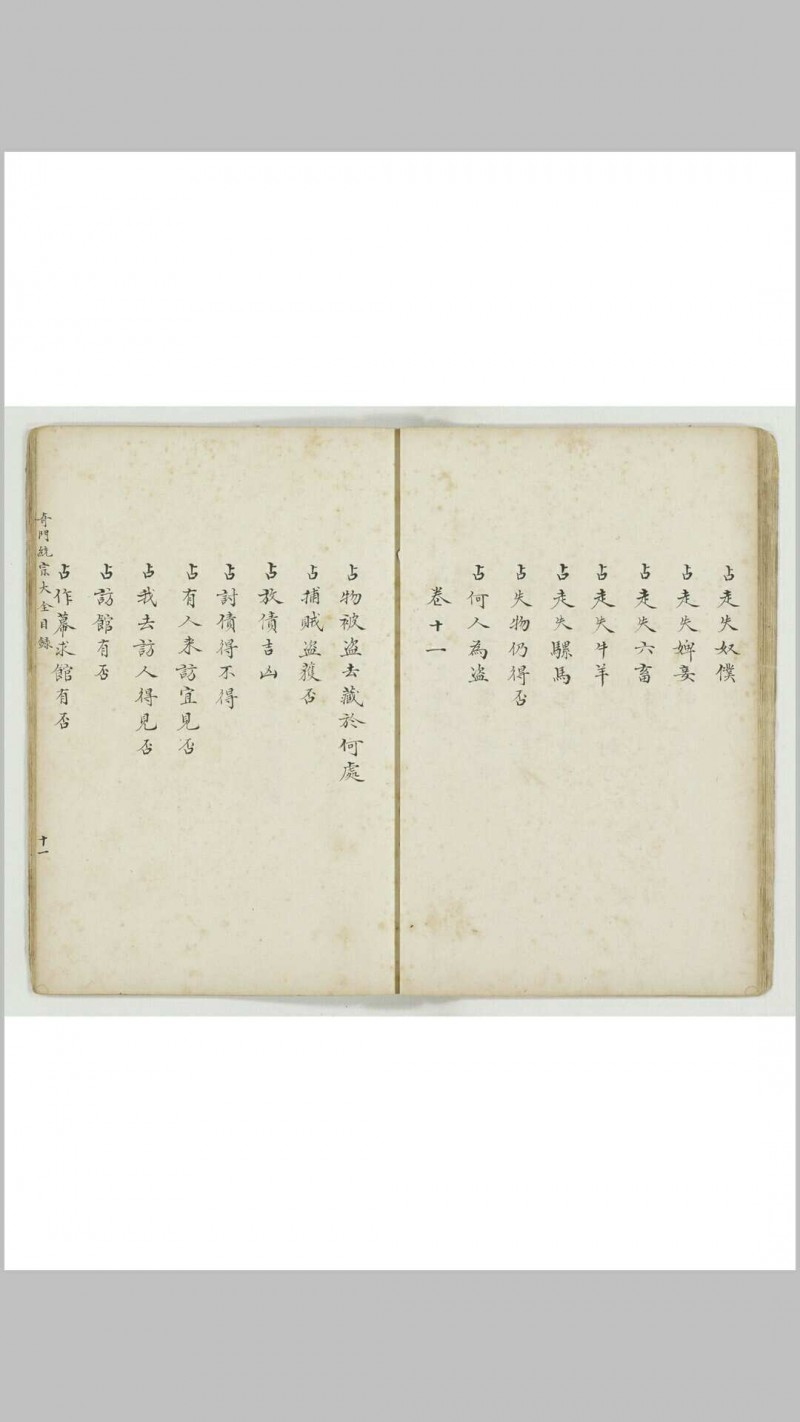 占走失奴僕
占走失婢妾
占走失六畜
占走失牛羊
占走失騾馬
占失物仍得否
占何人為盜
卷十一
占物被盜去藏於何處
占捕賊盜獲否
占放債吉凶
占討債得不得
占有人来訪宜見否
占我去訪人得見否
占訪館有否
占作幕求館有否
奇門統宗大全目錄
十一